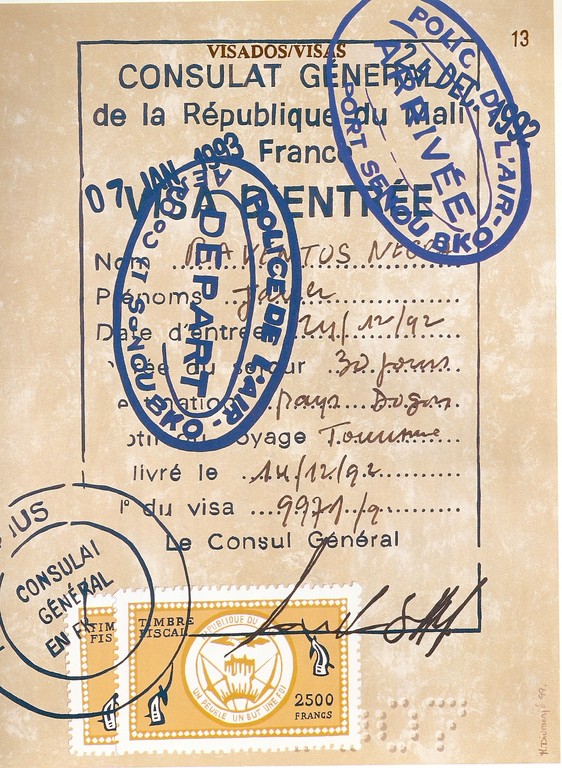 13
VISADOS/VISAS
CONSULAT GÉNÉRAL
de la République du Mali
France
VISA D'ENTRÉE
Nom
Prénoms Javier
Date d'entrée 24/12/92
du séjour 30 jours
pays Dogon
yage Tourisme
livré le 14/12/92
du visa 9971/9
Le Consul Général
POLICE DE L'AIR
24 DEC. 1992
ARRIVÉE
PORT SENOU BKO
07 JAN 1993
POLICE DE L'AIR
DÉPART
SENOU BKO
CONSULAT
GÉNÉRAL
EN FR
TIM
FIS
TIMBRE
FISCAL
RÉPUBLIQUE DU
UN PEUPLE UN BUT UNE FOI
2500
FRANCS